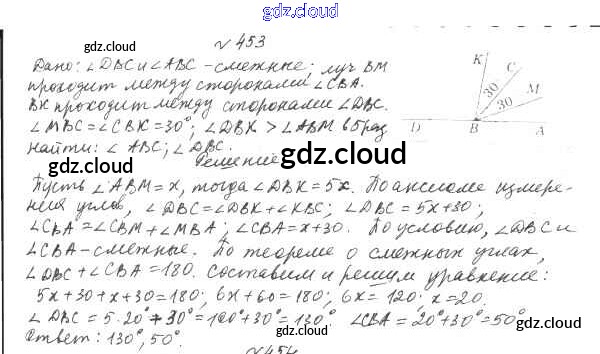 gdz.cloud
№ 453
gdz.cloud
gdz.cloud
Дано: ∠DBC и ∠ABC - смежные; луч BM
проходит между сторонами ∠CBA.
BK проходит между сторонами ∠DBC.
∠MBC = ∠CBK = 30°; ∠DBK > ∠ABM в 5 раз
найти: ∠ ABC; ∠ DBC.
K
C
M
30
30
D B A
gdz.cloud
gdz.cloud
Решение
Пусть ∠ABM = x, тогда ∠DBK = 5x. По аксиоме измере-
ния углов, ∠DBC = ∠DBK + ∠KBC; ∠DBC = 5x+30;
∠CBA = ∠CBM + ∠MBA; ∠CBA = x+30. По условию, ∠DBC и
∠CBA - смежные. По теореме о смежных углах,
∠DBC + ∠CBA = 180. Составим и решим уравнение:
5x + 30 + x + 30 = 180; 6x + 60 = 180; 6x = 120; x = 20.
∠ DBC = 5·20° + 30° = 100° + 30° = 130° ∠CBA = 20° + 30° = 50°
Ответ: 130°, 50°.
gdz.cloud
gdz.cloud
№ 454